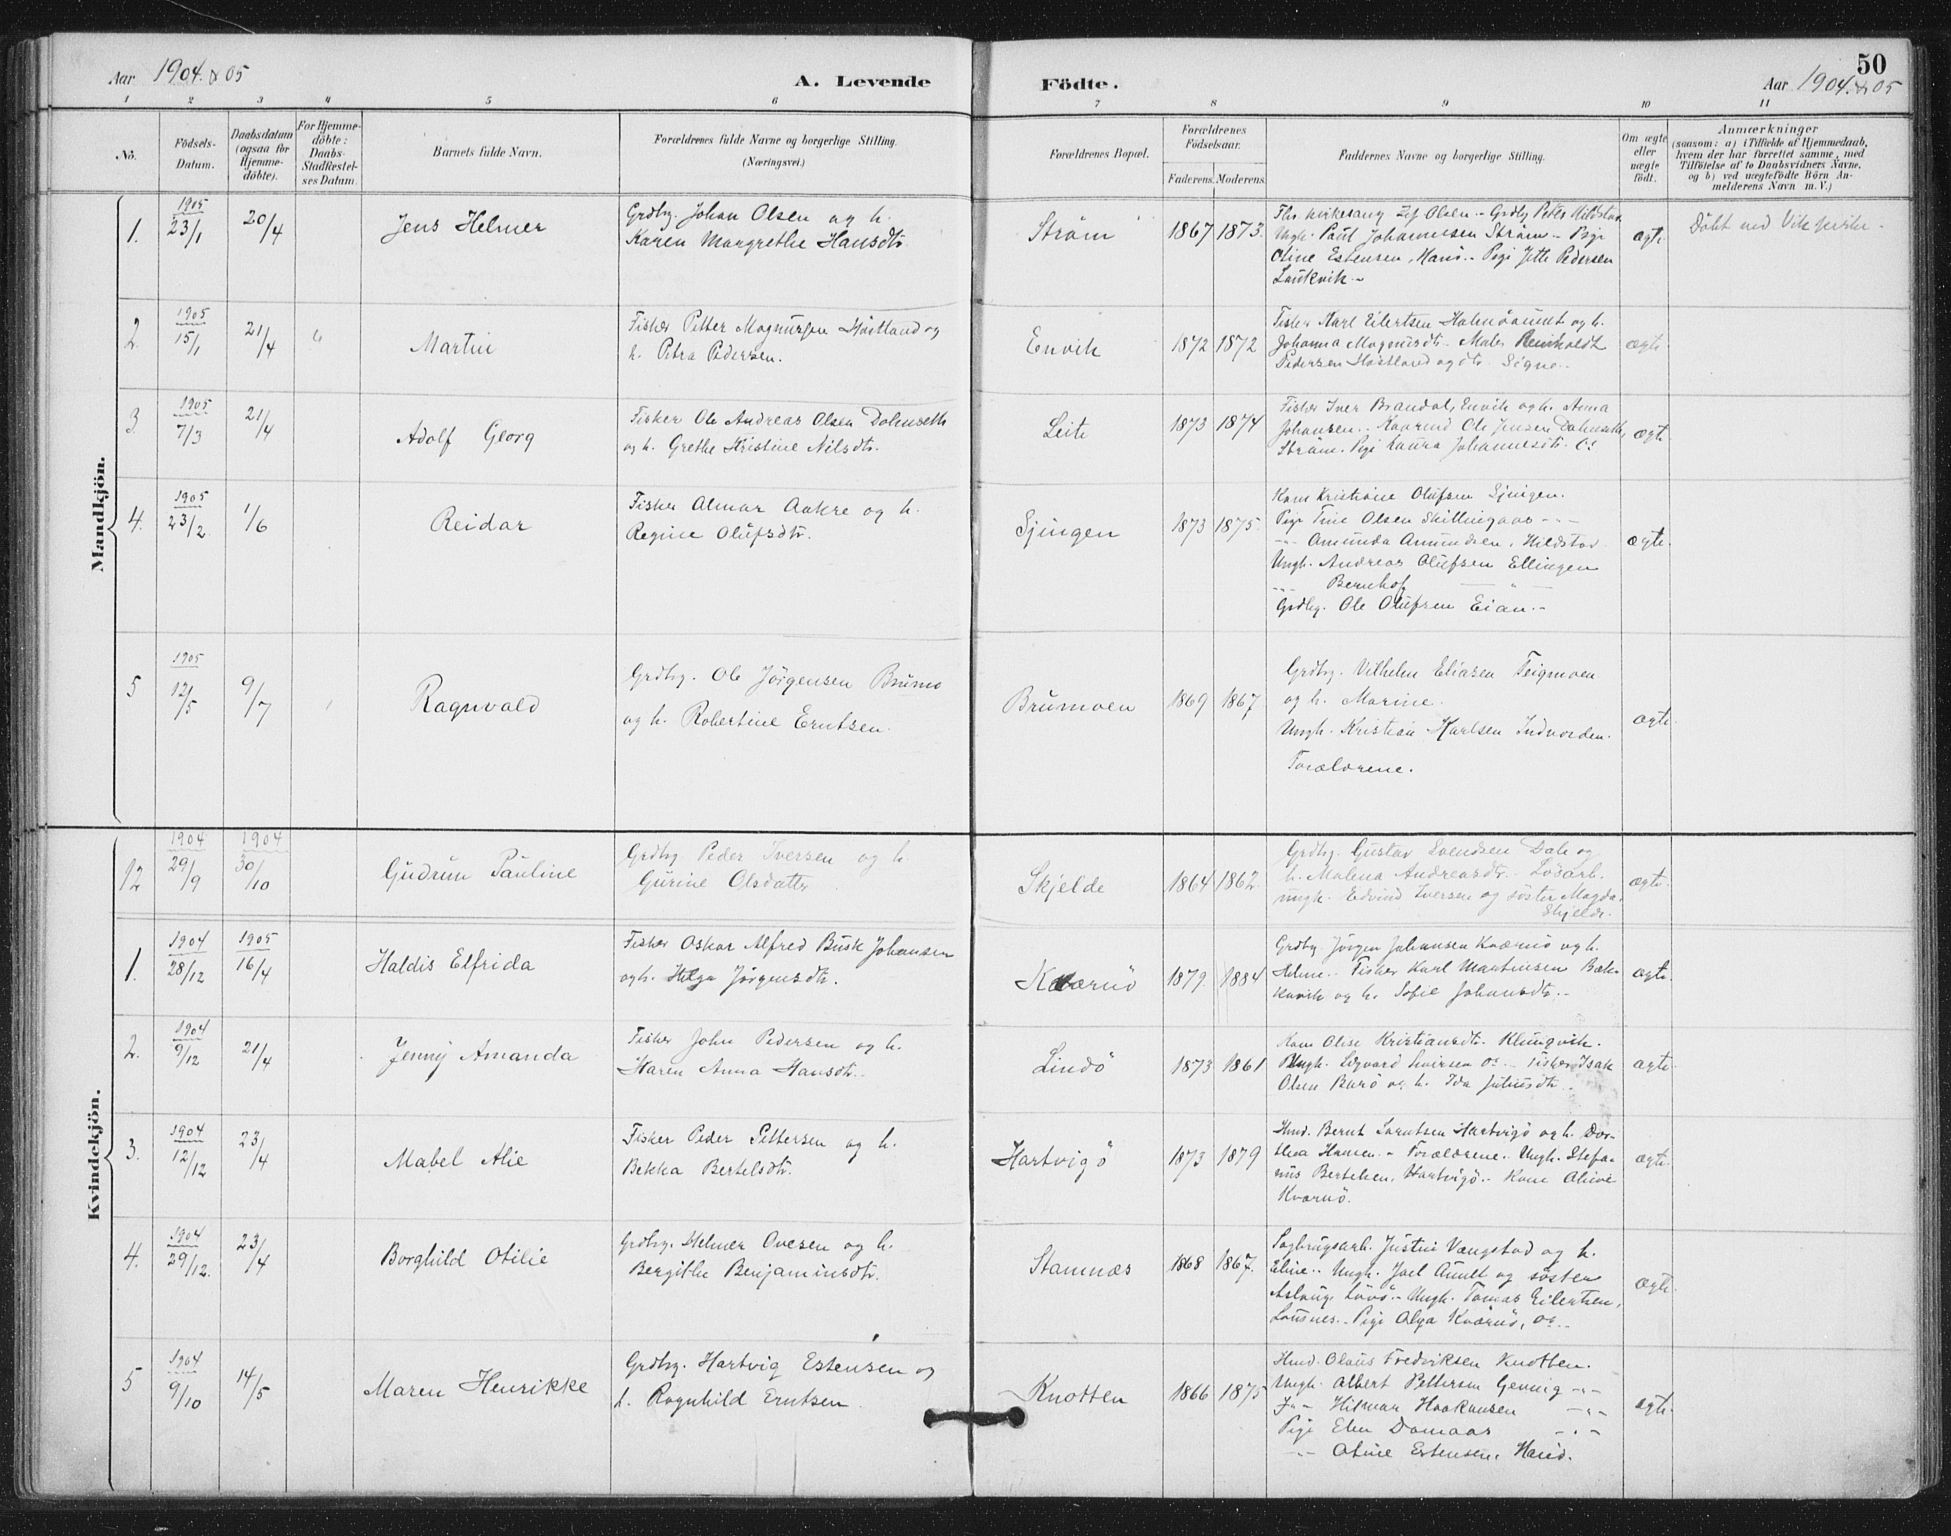 Aar 1904 & 05
A. Levende
Födte.
50
Aar 1904 & 05
1 2 3 4 5 6 7 8 9 10 11
No.
Födsels-
Datum.
Daabsdatum
(ogsaa for
Hjemme-
döbte).
For Hjemme-
döbte:
Daabs-
Stadfæstel-
ses Datum.
Barnets fulde Navn.
Forældrenes fulde Navne og borgerlige Stilling.
(Næringsvei.)
Forældrenes Bopæl.
Forældrenes
Födselsaar.
Faderens. Moderens.
Faddernes Navne og borgerlige Stilling.
Om ægte
eller
uægte
födt.
Anmærkninger
(saasom: a) i Tilfælde af Hjemmedaab,
hvem der har forrettet samme, med
Tilföielse af to Daabsvidners Navne,
og b) ved uægtefödte Börn An-
melderens Navn m. V.)
Mandkjön.
1. 1905 23/1 20/4
Jens Helmer
Grdbg. Johan Olsen og h.
Karen Margrethe Hansdtr.
Ström
1867 1873.
Olsen - Grdbg Peter Hildstad
Ungh. Paul Johannessen Ström - Pige
Oline Estensen, Hanö - Pige Jette Pedersen
Laukvik -
ægte
Döbt ved
2. 1905 15/1 21/4
Martin
Fisker Petter Magnussen Höstland og
h. Petra Pedersen.
Envik
1872 1872
Fisker Karl Eilertsen Holmösund og h.
Johanna Magnusdtr - Maler Reinholdt
Pedersen Höstland og dtr. Signe -
ægte
3. 1905 7/3 21/4
Adolf Georg
Fisker Ole Andreas Olsen Dahnseth
og h. Grethe Kristine Nilsdtr.
Leite
1873 1874
Fisker Iver Brandal, Envik og h. Anna
Johansen - Ole Jensen Dahnseth,
Ström - Pige Laura Johannesdtr.
ægte
4. 1905 23/2 1/6
Reidar
Fisker Almar Aakre og h.
Regine Olufsdtr.
Sjingen
1873 1875.
Kone Kristine Olufsen Sjingen.
Pige Trine Olsen Skillingaas -"-
-"- Amunda Amundsen, Hildstad
Ungh. Andreas Olufsen Ellingen
-"- Bernhof -"-
Grdbg. Ole Olufsen Eian -
ægte.
5 1905 12/5 9/7
Ragnvald
Grdbg. Ole Jörgensen Brumo
og h. Robertine Erntsen.
Brumoen
1869 1867
Grdbg. Vilhelm Eliasen Teigmoen
og h. Marine.
Ungh. Kristian Karlsen Indvorden.
Forældrene.
ægte
Kvindekjön.
12 1904 29/9 1904 30/10
Gudrun Pauline
Grdbg. Peder Iversen og h.
Gurine Olsdatter
Skjelde
1864 1862.
Grdbg. Gustav Svendsen Dale og
h. Malena Andreasdtr. - Lösarb.
ungh. Edvind Iversen og söster Magda
Skjelde.
ægte
1. 1904 28/12 1905 16/4
Haldis Elfrida
Fisker Oskar Alfred Busk Johansen
og h. Helga Jörgensdtr.
Kvarnö
1879. 1884
Grdbg. Jörgen Johansen Kvarnö og h.
Heline - Fisker Karl Martinsen Bæk-
kevik og h. Sofie Johansdtr. -
ægte
2. 1904 9/12 21/4
Jenny Amanda
Fisker John Pedersen og h.
Karen Anna Hansdtr. -
Lindö
1873 1861
Kone Olise Kristiansdtr. Klungvik.
Ungh. Edvard Iversen - Fisker Isak
Olsen Burö og h. Ida Juliusdtr. -
ægte
3. 1904 12/12 23/4
Mabel Alie
Fisker Peder Pettersen og h.
Bekka Bertelsdtr.
Hartvigö
1873 1879
Hmd. Bernt Hartvigö og h. Dor-
thea Hansen - Forældrene - Ungh. Stefa-
nus Bertelsen, Hartvigö - Kone Olive
Kvarnö.
ægte
4. 1904 29/12. 23/4
Borghild Otilie
Grdbg. Helmer Ovesen og h.
Bergithe Benjaminsdtr.
Stamnæs
1868 1867.
Sagbrugsarb. Justin Vængstad og h.
Eline - Ungh. Joel Aundt og söster
Aslaug Lövö - Ungh. Tomas Eilertsen,
Lousnes - Pige Olga Kvarnö,
ægte
5 1904 9/10 14/5
Maren Henrikke
Grdbg. Hartvig Estensen og
h. Ragnhild Erntsen.
Knotten
1866 1875
Hmd. Olaus Fredriksen Knotten.
Ungh. Albert Pettersen -"-
Hilmar Haakonsen -"-
Pige Elen Domaas -"-
-"- Oline Estensen, Hanö.
ægte